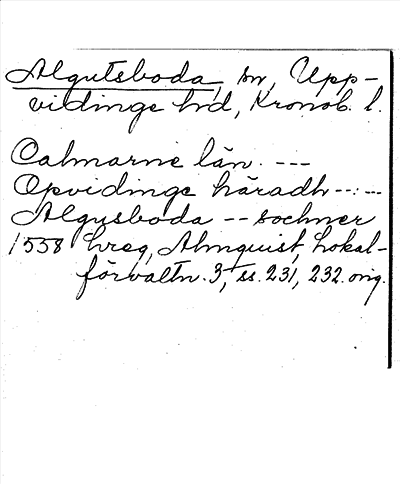 Algutsboda, sn, Upp-
vidinge hd, Kronob. l.
Calmarne län. ---
Opvidinge häradh --:--
Algusboda -- sochner
1558 hreg, Almquist, Lokal-
förvaltn. 3, ss. 231, 232. orig.